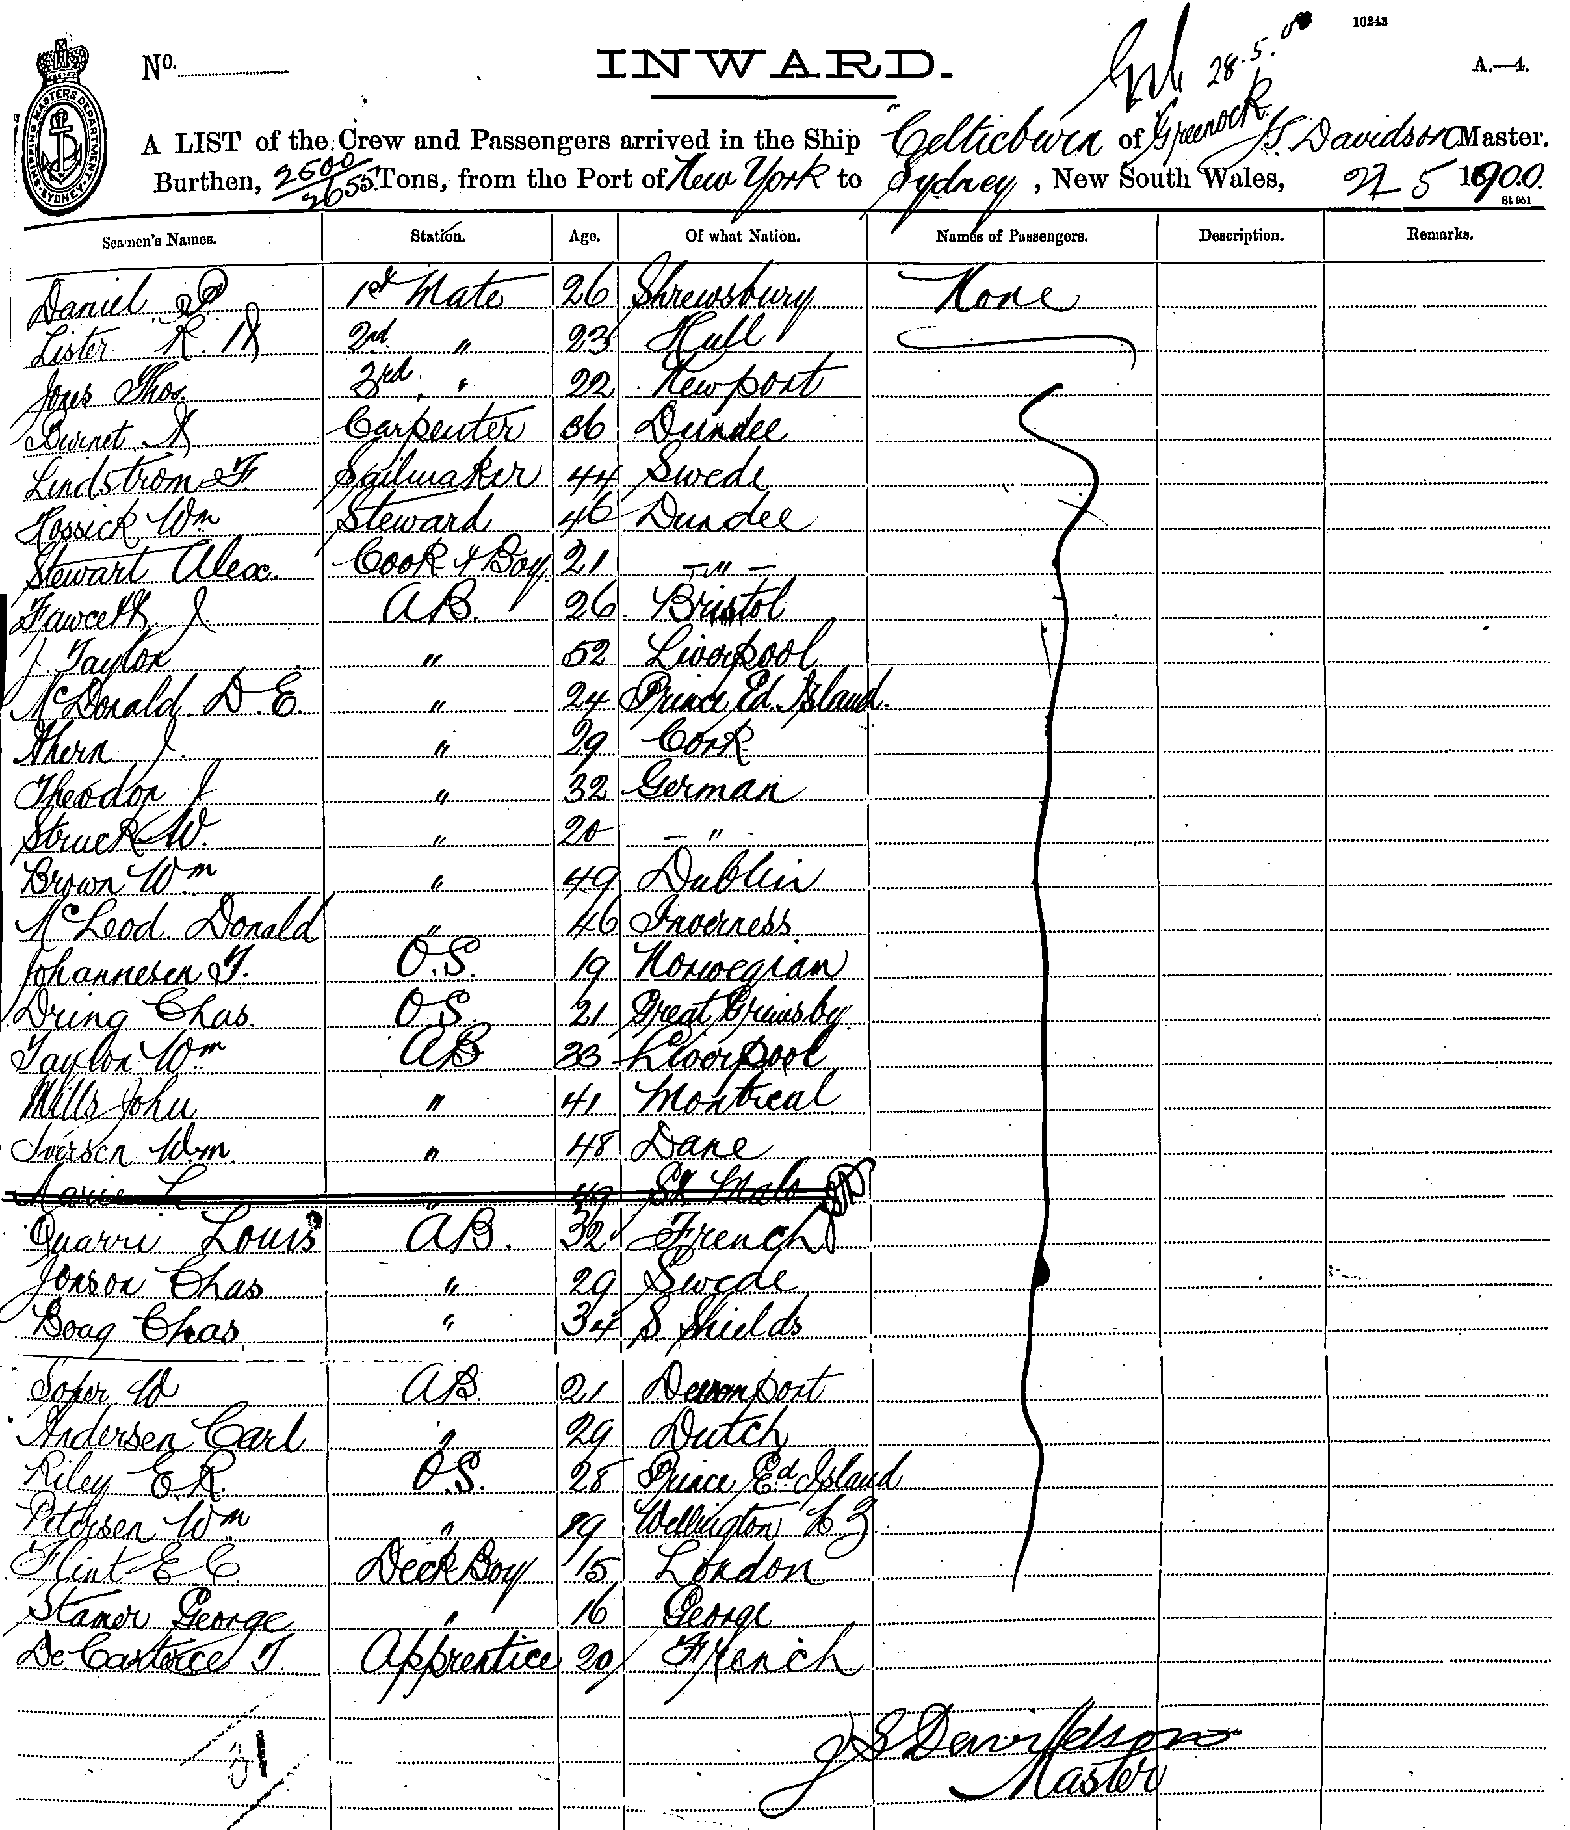 10243
No. INWARD. 28.5.00 A.—4.
A LIST of the Crew and Passengers arrived in the Ship "Celticburn of Greenock, J.S. Davidson Master.
Burthen, 2500/2655 Tons, from the Port of New York to Sydney, New South Wales, 27 5 1900.
SHIPPING MASTERS DEPARTMENT N.S.W. SYDNEY
Seamen's Names. Station. Age. Of what Nation. Names of Passengers. Description. Remarks.
Daniel 1st Mate 26 Shrewsbury None
Lister R. H 2nd " 23 Hull
Jones Thos. 3rd " 22 Newport
Burnet A Carpenter 36 Dundee
Lindstrom F. Sailmaker 44 Swede
Hossick Wm Steward 46 Dundee
Stewart Alex. Cook & Boy 21 – " –
Fawcett J AB. 26 Bristol
J. Taylor " 52 Liverpool
McDonald D.E. " 24 Prince Ed. Island.
Ahern J. " 29 Cork
Theodor J " 32 German
Struck W. " 20 – "
Brown Wm " 49 Dublin
McLeod Donald " 46 Inverness.
Johannesen F. O.S. 19 Norwegian
Dring Chas. O.S. 21 Great Grimsby
Taylor Wm AB 33 Liverpool
Mills John " 41 Montreal
Iversen Wm. " 48 Dane
Marie L " 49 St Malo
Quarri Louis AB. 32 French
Jonson Chas " 29 Swede
Boag Chas. " 34 S Shields
Soper W AB. 21 Devonport
Andersen Carl " 29 Dutch
Riley E.R. O.S. 28 Prince Ed Island
Petersen Wm " 19 Wellington N Z.
Flint E C Deck Boy 15 London
Stamer George " 16 George
De Castorce T. Apprentice 20 French
31
J S Davidson
Master